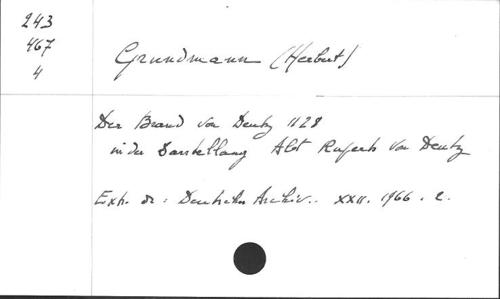 243
467
4
Grundmann (Herbert)
Der Brand von Deutz 1128
in der Darstellung Abt Ruperts von Deutz
Extr. de : Deutsches Archiv.. XXII. 1966. 2.